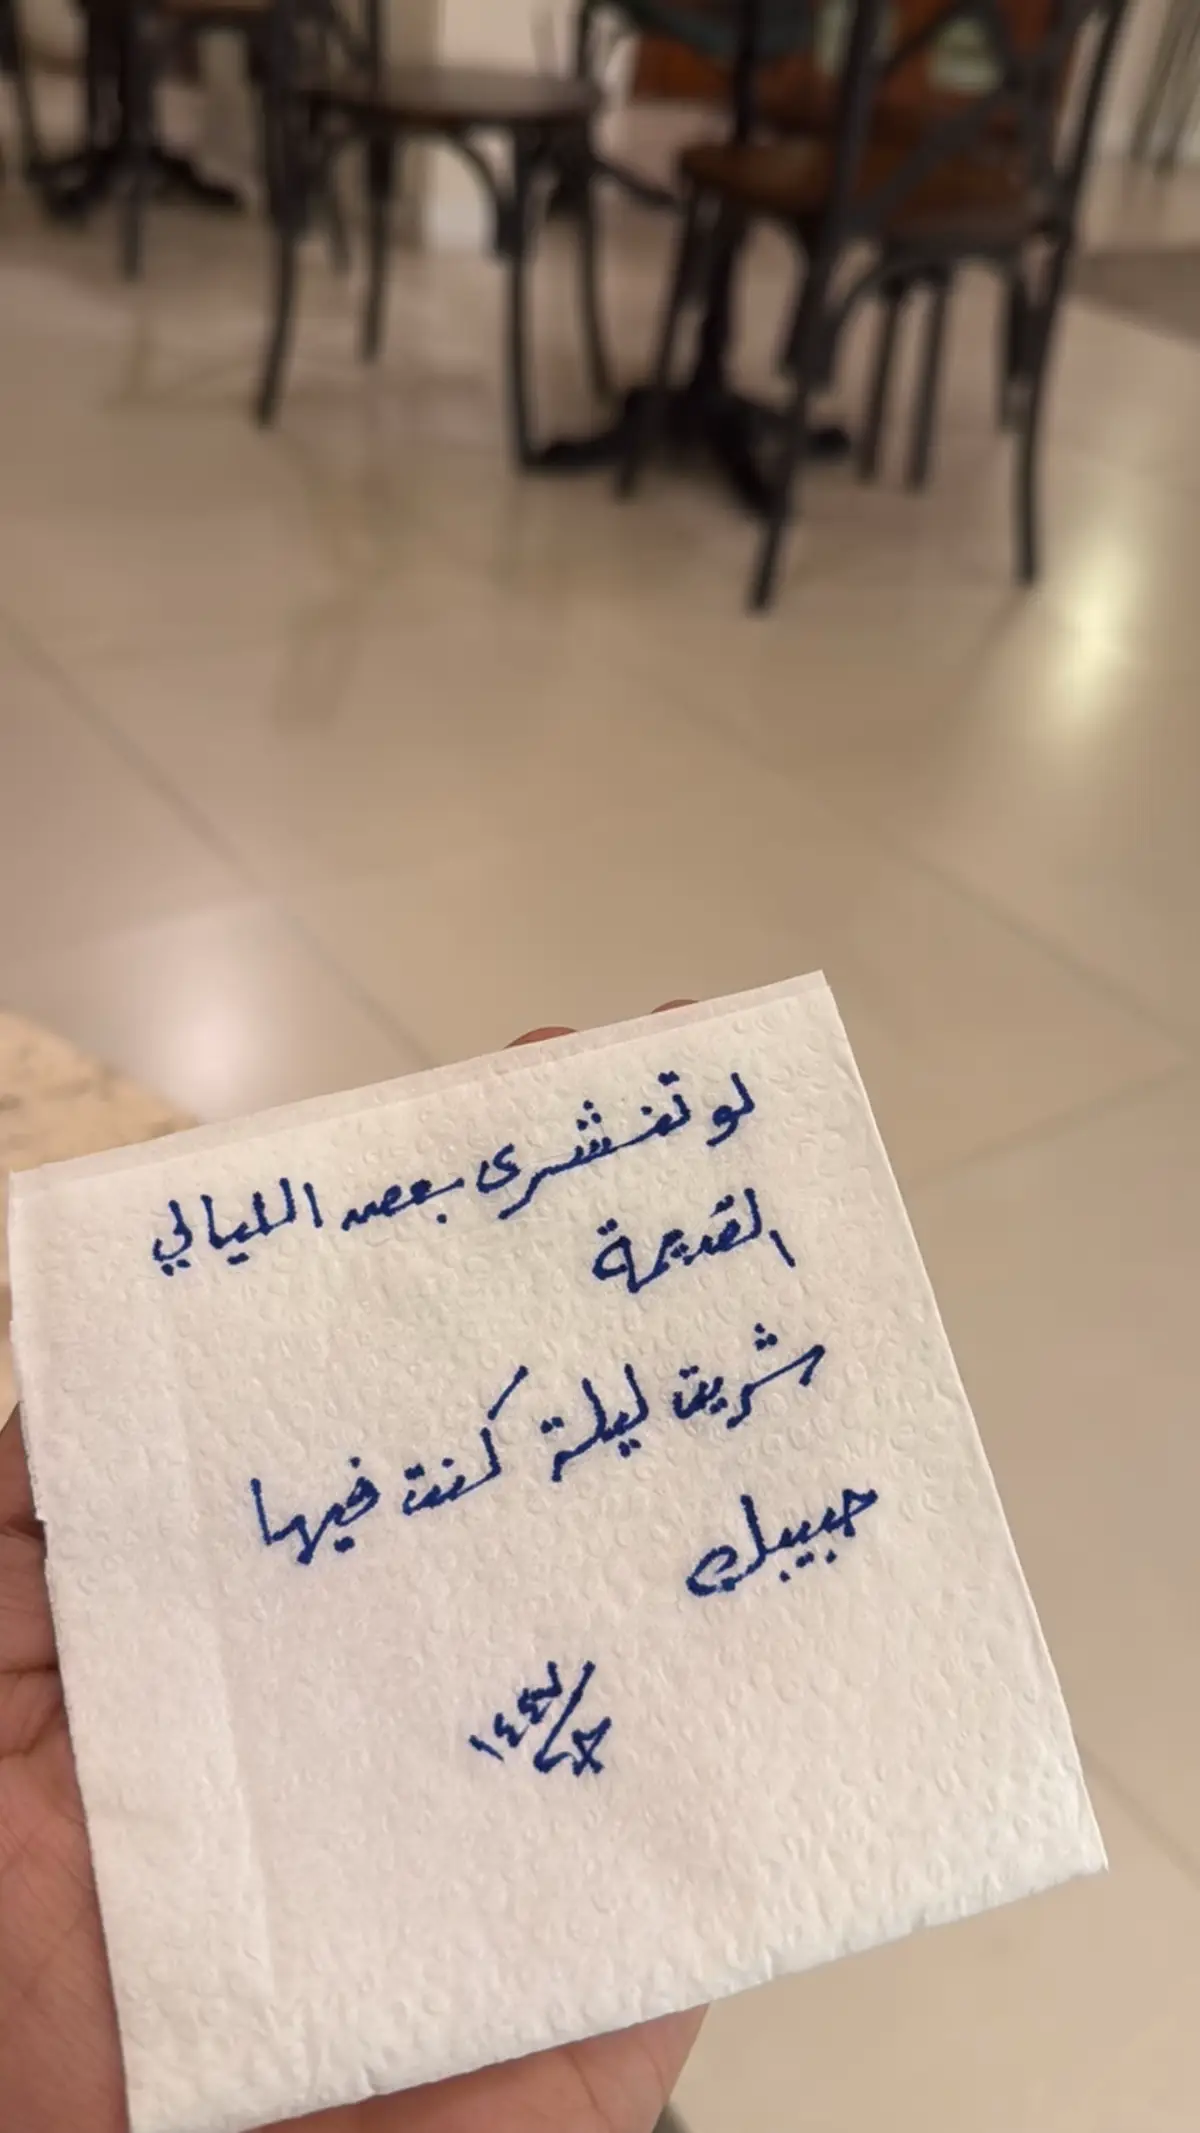 لو تنشرى بعض الليالي
القديمة
شريت ليلة كنت فيها
حبيبك